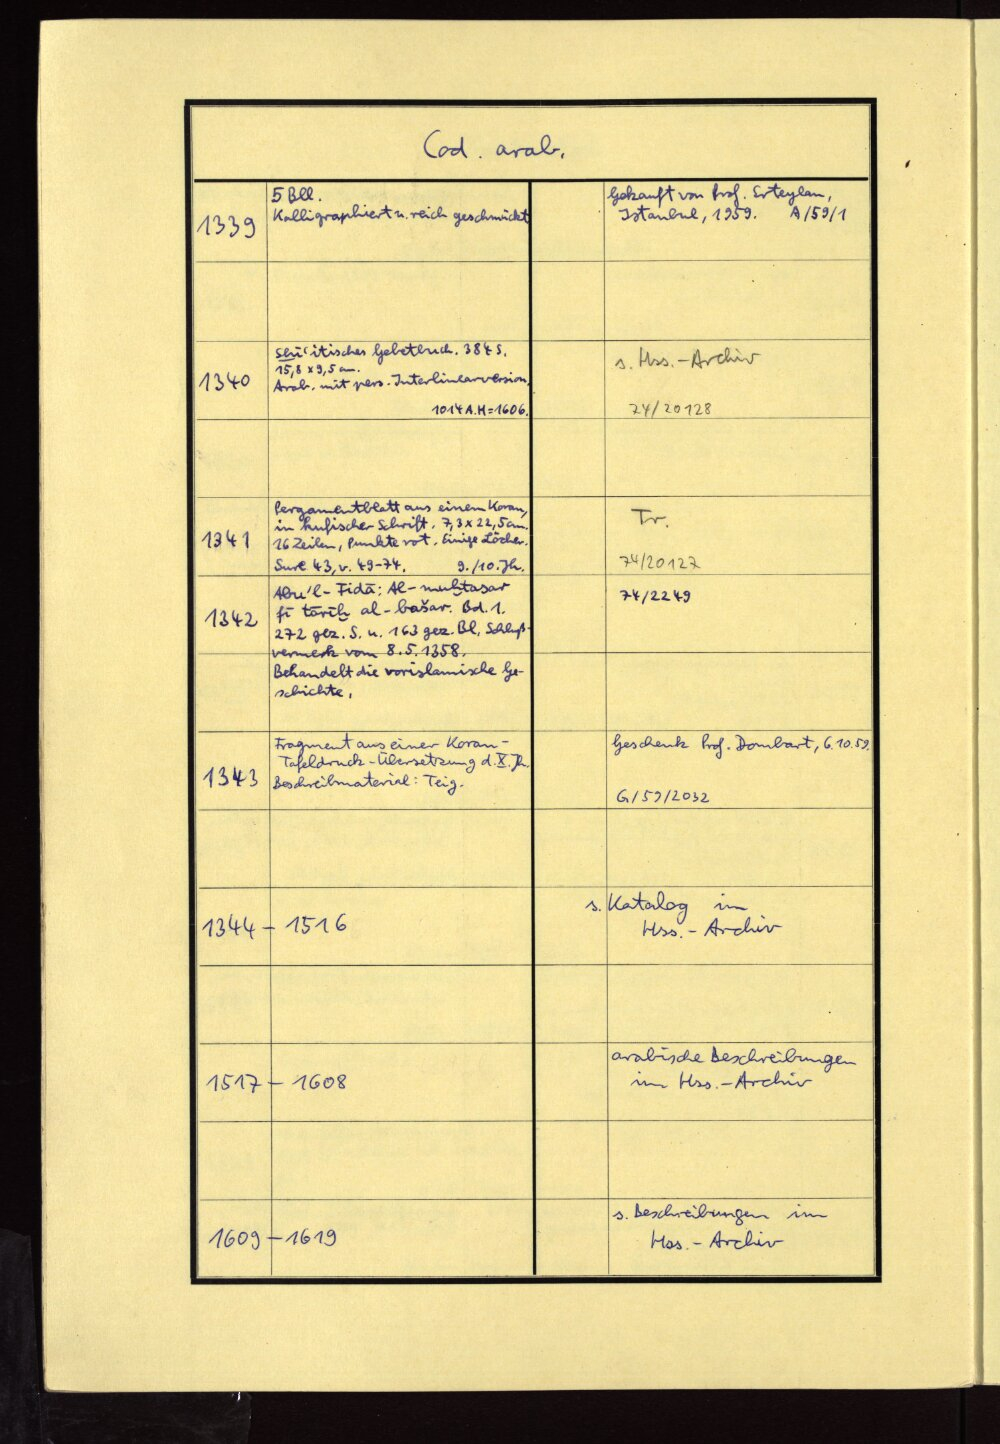 Cod. arab.
1339
5 Bll.
Kalligraphiert u. reich geschmückt
Gekauft von Prof. Erteylan,
Istanbul, 1959. A/59/1
1340
schi'itisches Gebetbuch. 384 S.
15,8 x 9,5 cm.
Arab. mit pers. Interlinearversion.
1014 A.H = 1606.
s. Hss.-Archiv
74/20128
1341
Pergamentblatt aus einem Koran,
in kufischer Schrift. 7,3 x 22,5 cm.
16 Zeilen, Punkte rot. Einige Löcher.
Sure 43, v. 49-74. 9./10. Jh.
Tr.
74/20127
1342
Abu'l-Fidā: Al-muḫtaṣar
fī tārīḫ al-bašar. Bd. 1.
272 gez. S. u. 163 gez. Bl. Schluß-
vermerk vom 8.5.1358.
Behandelt die vorislamische Ge-
schichte.
74/2249
1343
Fragment aus einer Koran-
Tafeldruck-Übersetzung d. X. Jh.
Beschreibmaterial: Teig.
Geschenk Prof. Dombart, 6.10.59.
G/59/2032
1344 - 1516
s. Katalog im
Hss.-Archiv
1517 - 1608
arabische Beschreibungen
im Hss.-Archiv
1609 - 1619
s. Beschreibungen im
Hss.-Archiv